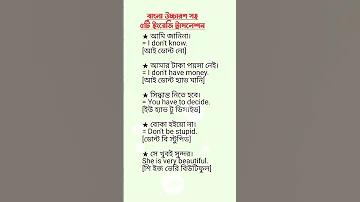 বাংলা উচ্চারণ সহ
৫টি ইংরেজি ট্রান্সলেশন
★ আমি জানিনা।
= I don't know.
[আই ডোন্ট নো]
★ আমার টাকা পয়সা নেই।
= I don't have money.
[আই ডোন্ট হ্যাভ মানি]
★ সিদ্ধান্ত নিতে হবে।
= You have to decide.
[ইউ হ্যাভ টু ডিসাইড]
★ বোকা হইয়ো না।
= Don't be stupid.
[ডোন্ট বি স্টুপিড]
★ সে খুবই সুন্দর।
She is very beautiful.
[শি ইজ ভেরি বিউটিফুল]